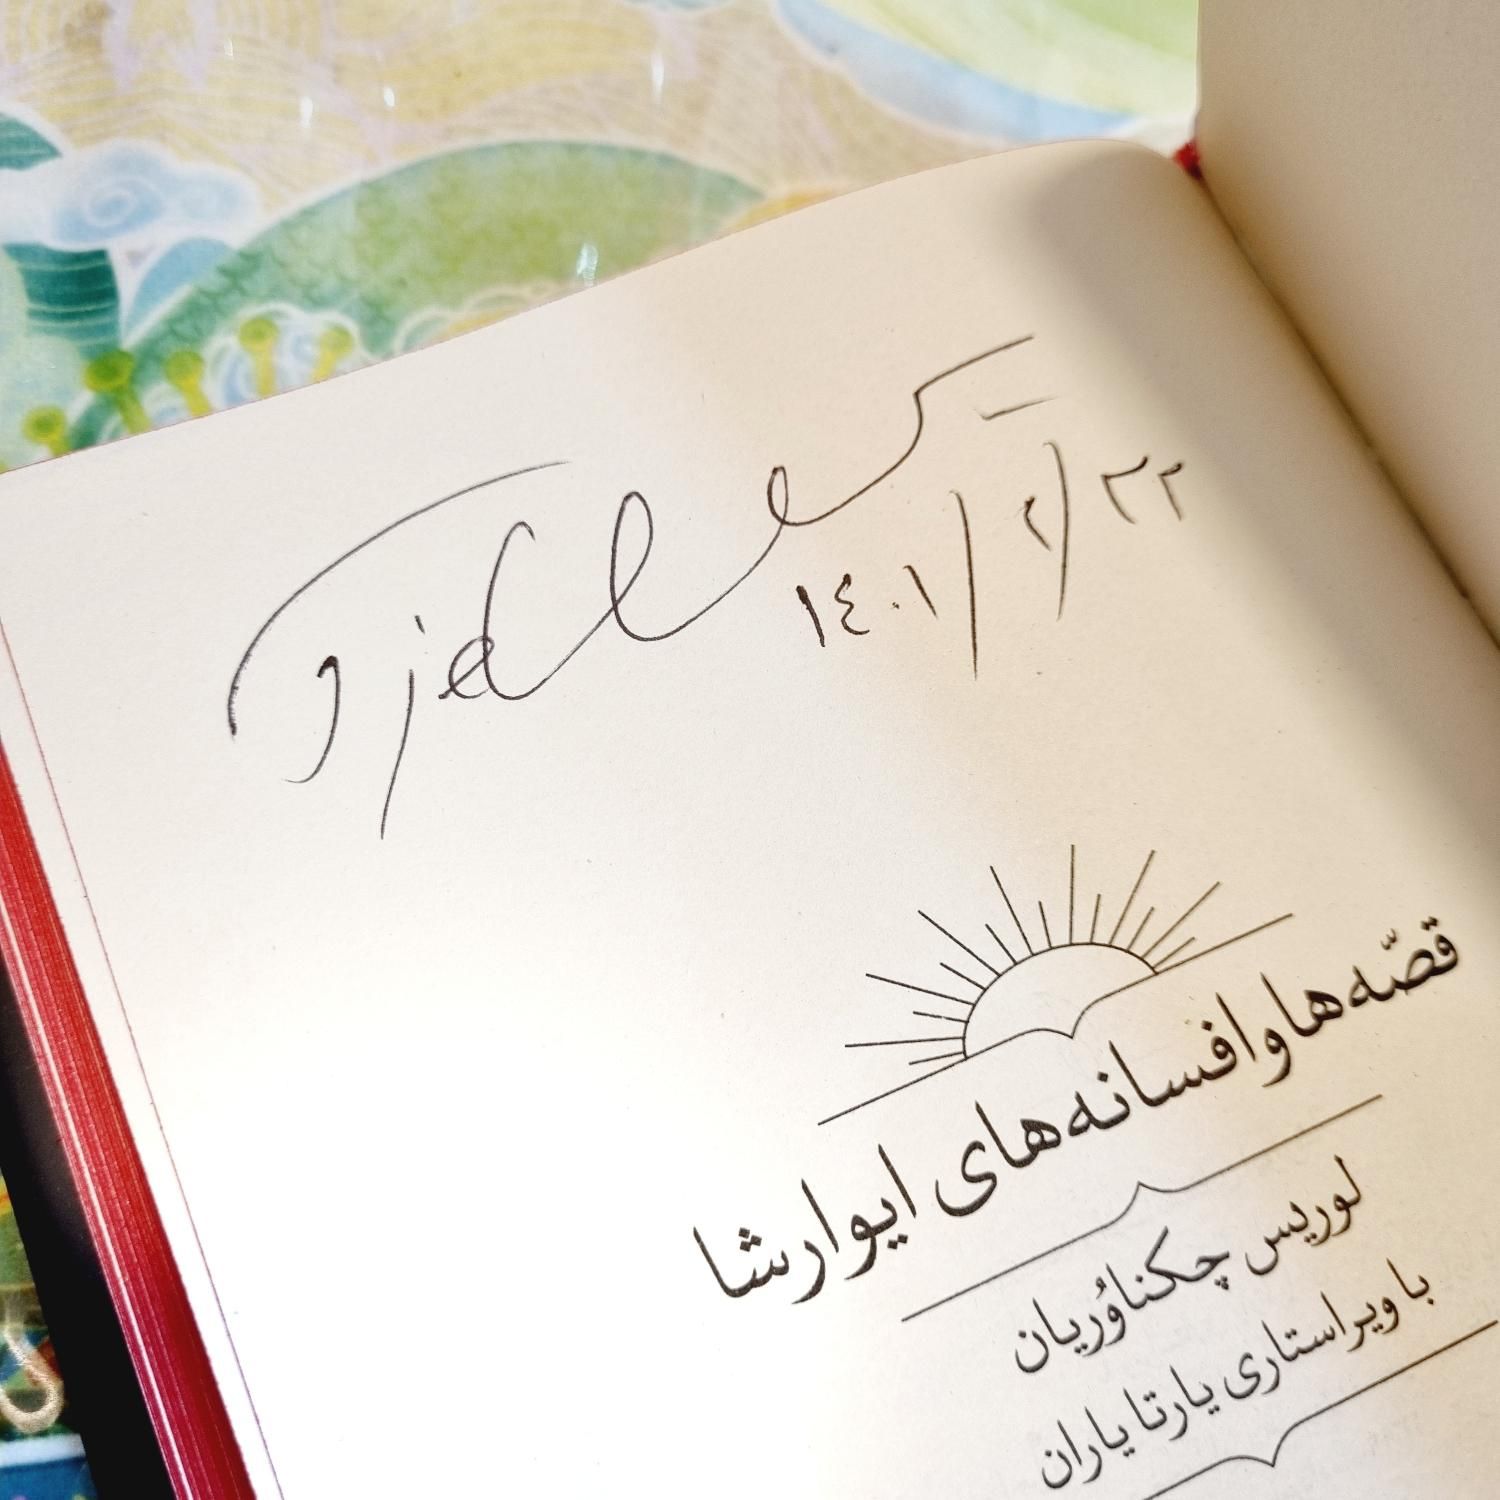 ۱۴۰۱/۲/۲۲
قصّه‌ها و افسانه‌های ایوارشا
لوریس چکناوُریان
با ویراستاری یارتا یاران